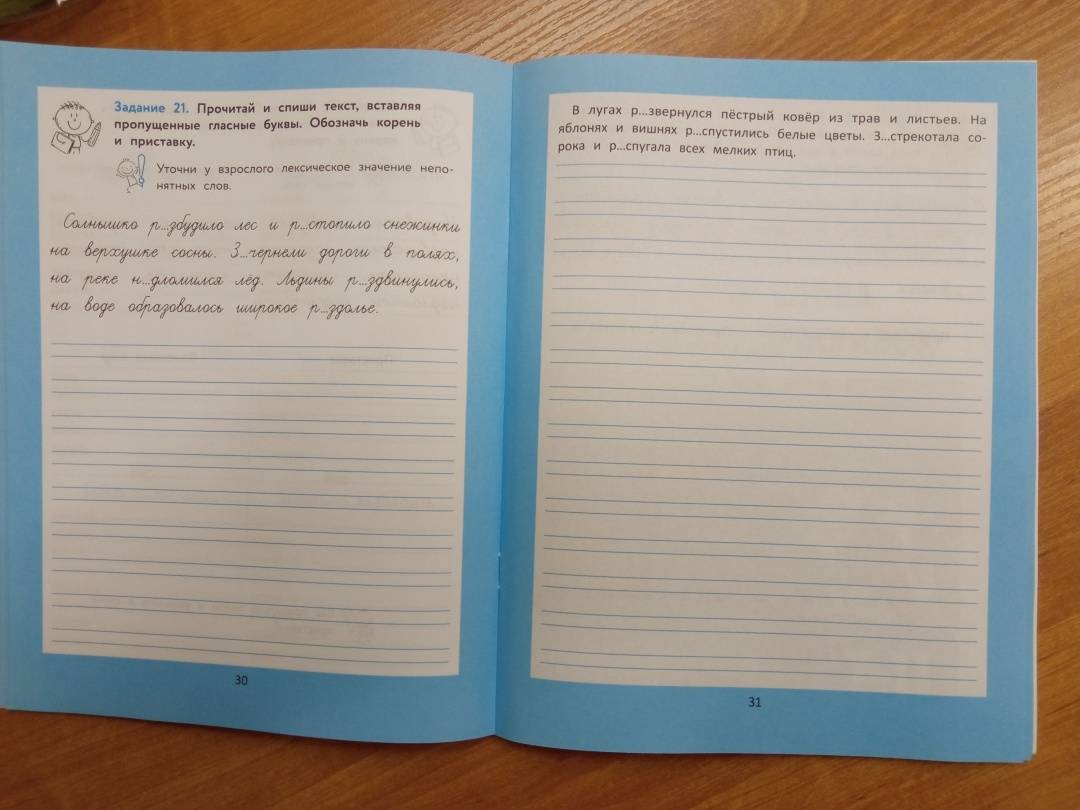 Задание 21. Прочитай и спиши текст, вставляя
пропущенные гласные буквы. Обозначь корень
и приставку.
Уточни у взрослого лексическое значение непо-
нятных слов.
Солнышко р...збудило лес и р...стопило снежинки
на верхушке сосны. З...чернели дороги в полях,
на реке н...дломился лёд. Льдины р...здвинулись,
на воде образовалось широкое р...здолье.
30
В лугах р...звернулся пёстрый ковёр из трав и листьев. На
яблонях и вишнях р...спустились белые цветы. З...стрекотала со-
рока и р...спугала всех мелких птиц.
31